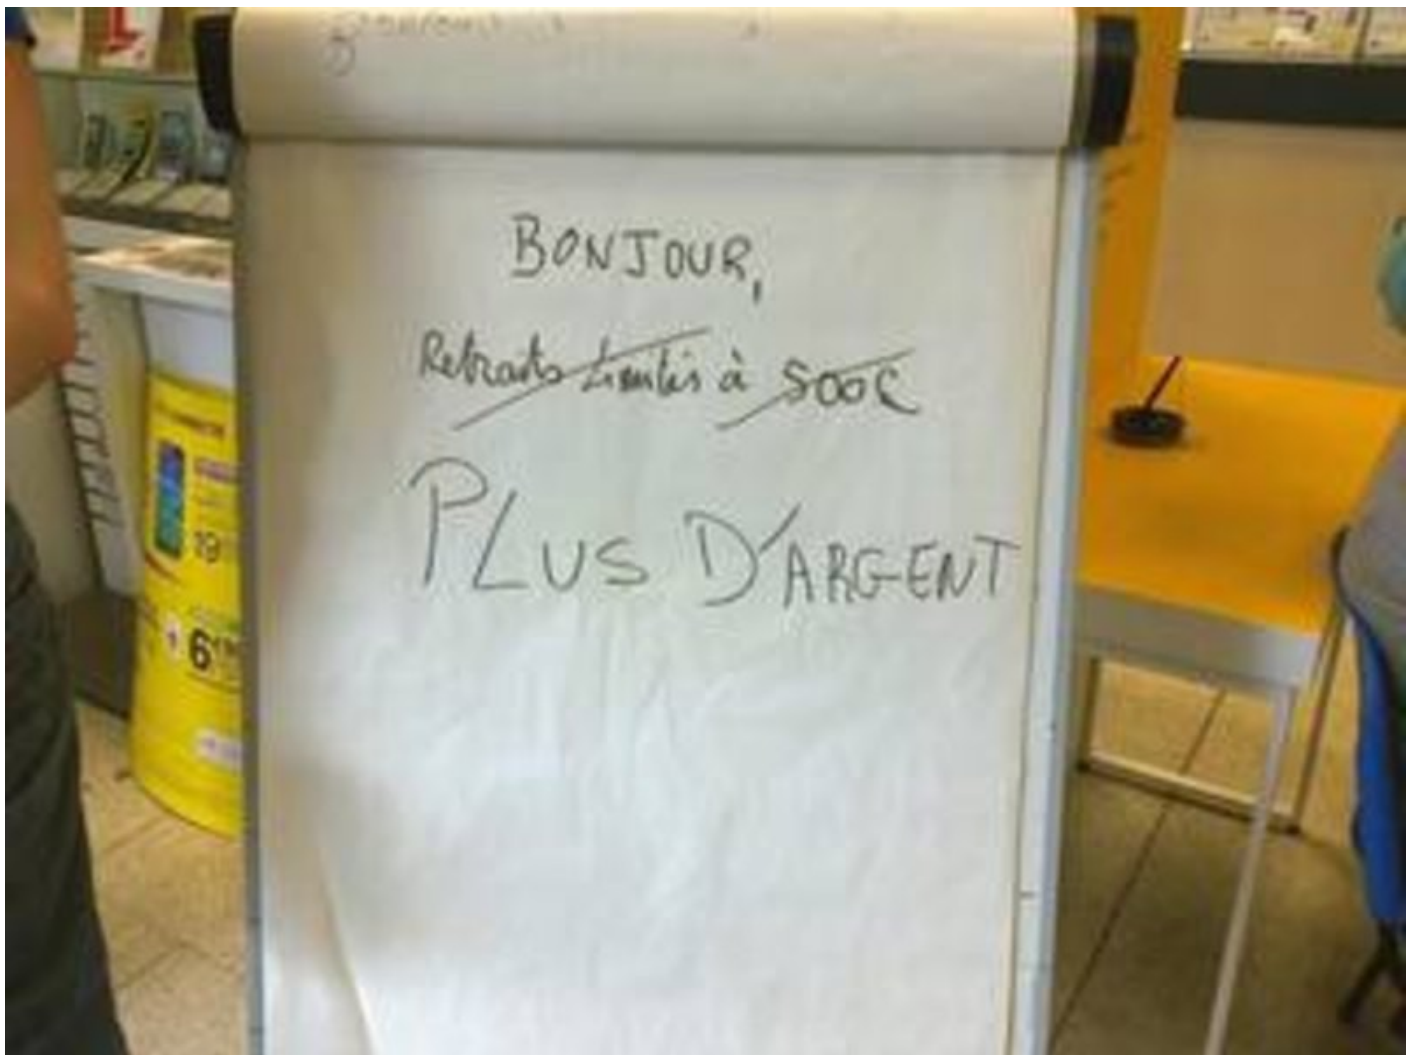 BONJOUR,
Retraits limités à 500€
PLUS D'ARGENT
19
6€